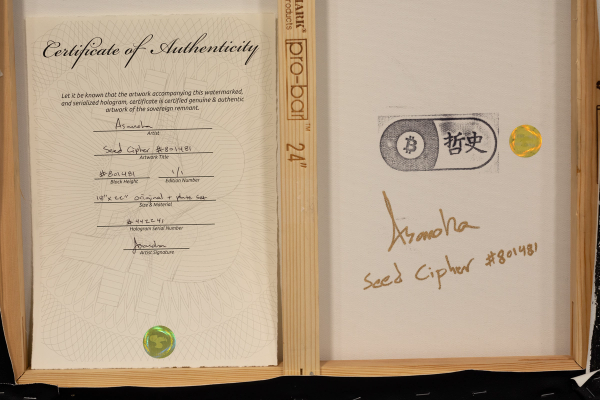 Certificate of Authenticity
Let it be known that the artwork accompanying this watermarked,
and serialized hologram, certificate is certified genuine & authentic
artwork of the sovereign remnant.
Asanoha
Artist
Seed Cipher #801481
Artwork Title
#801481 1/1
Block Height Edition Number
18"x22" original +
Size & Material
# 442241
Hologram Serial Number
Asanoha
Artist Signature
MARK
products
pro-bar™
24"
₿ 哲史
Asanoha
Seed Cipher #801481